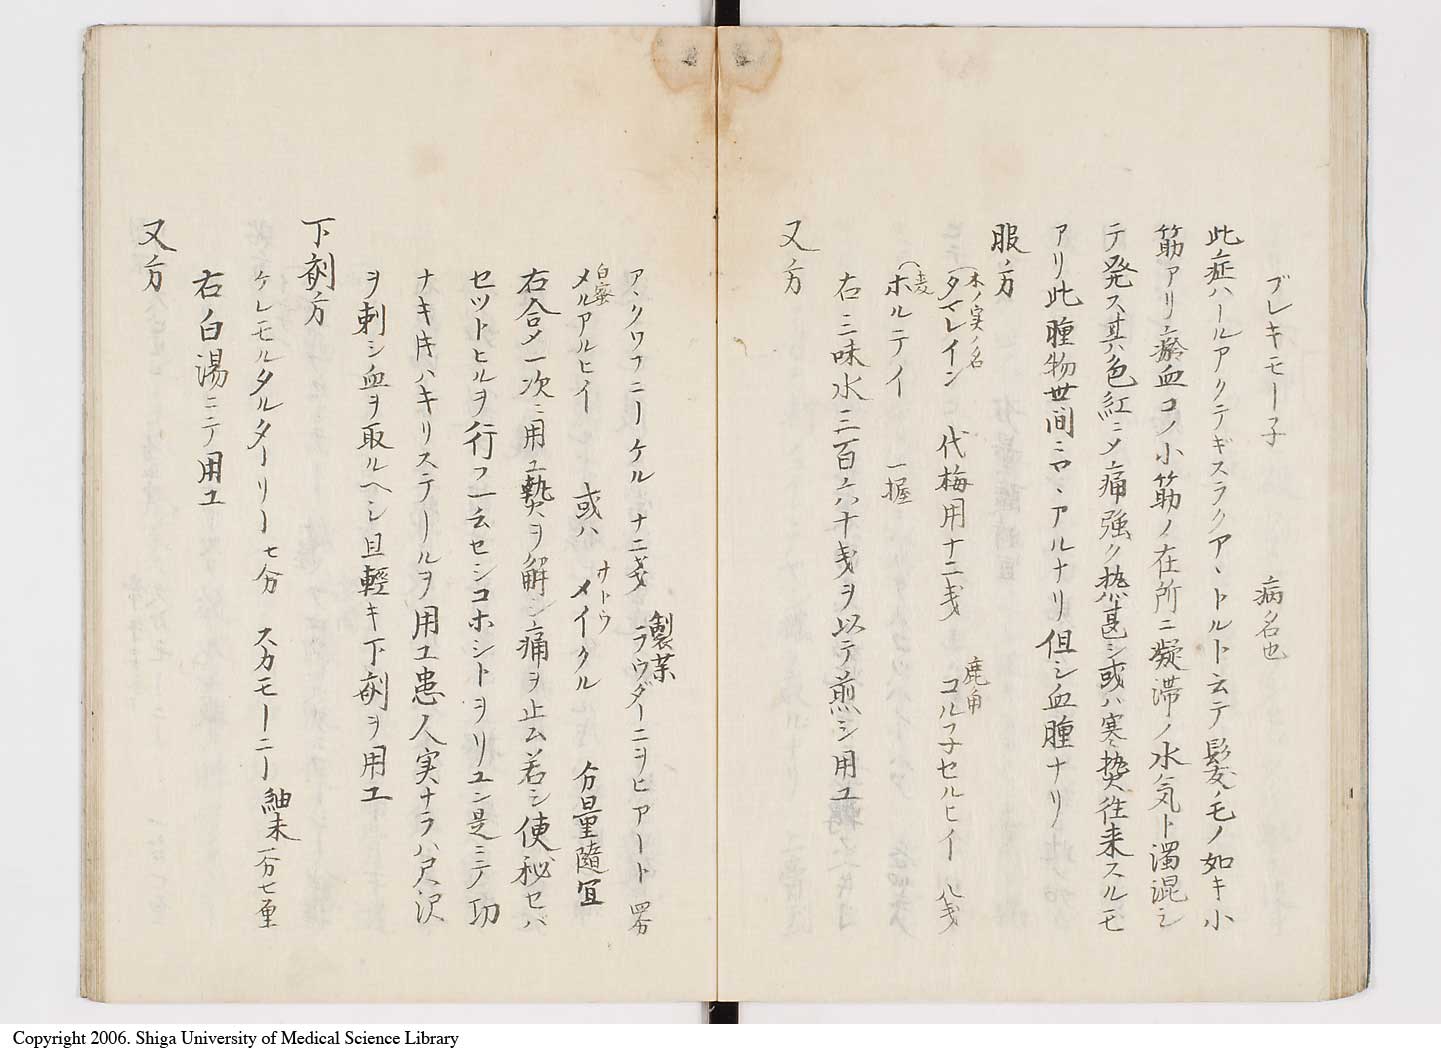 ブレキモー子　病名也
此症ハールアクテギスラクアヽトルト云テ髪ノ毛ノ如キ小
筋アリ瘀血コノ小筋ノ在所ニ凝滞ノ水気ト濁混シ
テ発ス其ハ色紅ニメ痛強ク熱甚シ或ハ寒熱往来スルモ
アリ此腫物世間ニマヽアルナリ但シ血腫ナリ
服ノ方
木ノ実ノ名
タマレイン　代梅用十二戔
鹿角
コルフ子セルヒイ　八戔
麦
ホルテイ　一握
右三味水三百六十戔ヲ以テ煎シ用ユ
又方
アヽクワフニーケル　ナ二戔
製薬
ラウダーニヲヒアート　四分
白蜜
メルアルヒイ　或ハ
ナトウ
メイクル　分量随宜
右合メ一次ニ用ユ熱ヲ解シ痛ヲ止ム若シ使秘セバ
セツトヒルヲ行フ一云セシコホシトヲリユン是ニテ功
ナキ片ハキリステールヲ用ユ患人実ナラハ尺沢
ヲ刺シ血ヲ取ルヘシ且軽キ下剤ヲ用ユ
下剤方
ケレモルタルターリー　七分　スカモーニー　細末　一分七厘
右白湯ニテ用ユ
又方
Copyright 2006. Shiga University of Medical Science Library